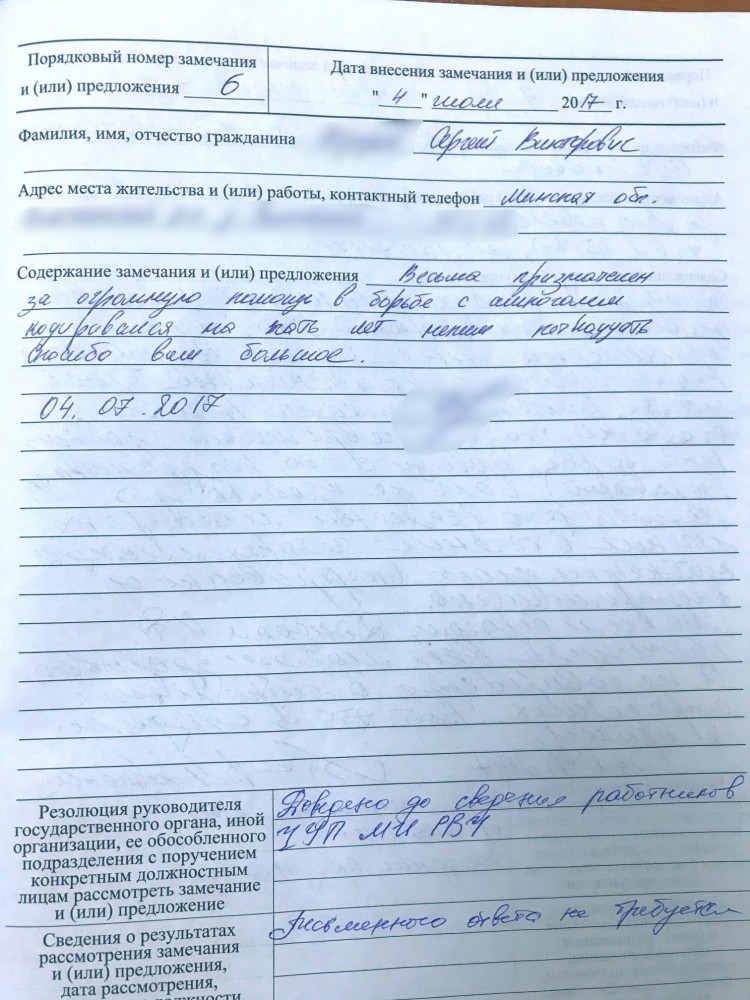 Порядковый номер замечания
и (или) предложения 6
Дата внесения замечания и (или) предложения
"4" июля 2017 г.
Фамилия, имя, отчество гражданина Сергей Викторович
Адрес места жительства и (или) работы, контактный телефон Минская обл.
Содержание замечания и (или) предложения Весьма признателен
за огромную помощь в борьбе с алкоголем
кодировался на пять лет
Спасибо вам большое.
04.07.2017
Резолюция руководителя
государственного органа, иной
организации, ее обособленного
подразделения с поручением
конкретным должностным
лицам рассмотреть замечание
и (или) предложение
Доведено до сведения работников
Сведения о результатах
рассмотрения замечания
и (или) предложения,
дата рассмотрения,
должности
Письменного ответа не требуется